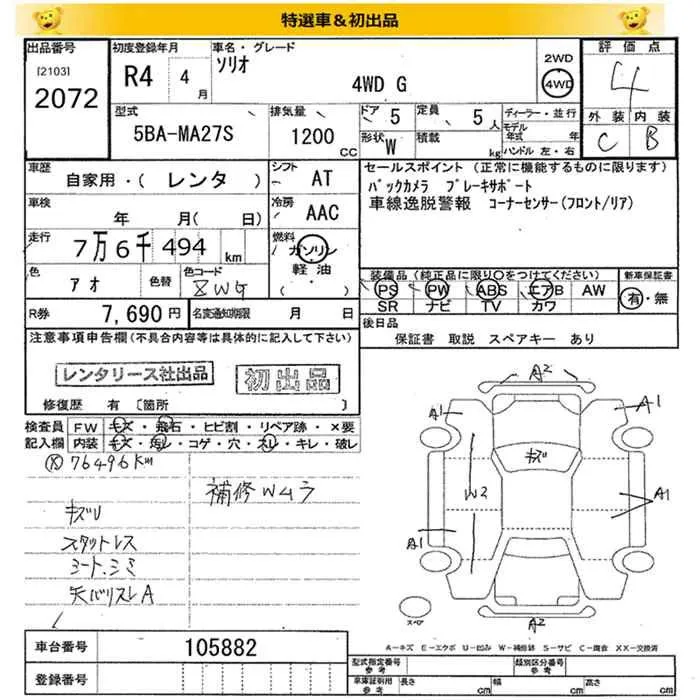 特選車＆初出品
出品番号
[2103]
2072
初度登録年月
R4 4月
車名・グレード
ソリオ
4WD G
2WD
4WD
評価点
4
外装 内装
C B
型式
5BA-MA27S
排気量
1200 CC
ドア 5
定員 5人
形状 W
積載 kg
ディーラー・並行
モデル年式 年
ハンドル 左・右
車歴
自家用・( レンタ )
シフト AT
車検
年 月( 日)
冷房 AAC
走行
7万6千494 km
燃料
ガソリン
軽油
( ・ )
色
アオ
色替
色コード
ZWG
R券 7,690円
名変通知期限 月 日
セールスポイント (正常に機能するものに限ります)
バックカメラ ブレーキサポート
車線逸脱警報 コーナーセンサー(フロント/リア)
装備品 (純正品に限り○をつけてください)
PS PW ABS エアB AW
SR ナビ TV カワ
新車保証書
有・無
後日品
保証書 取説 スペアキー あり
注意事項申告欄(不具合内容等は具体的に記入して下さい)
レンタリース社出品
初出品
修復歴 有 [箇所 ]
検査員記入欄
FW キズ・飛石・ヒビ割・リペア跡・×要
内装 キズ・汚レ・コゲ・穴・スレ・キレ・破レ
76496KM
補修Wムラ
キズU
スタットレス
シート.シミ
A2
A1
A1
キズ
W2
A1
A1
A2
スペア
車台番号 105882
登録番号
A－キズ E－エクボ U－凹み W－補修跡 S－サビ C－腐食 XX－交換済
型式指定番号
参考
類別区分番号
参考
車庫証明用
参考
長さ cm
幅 cm
高さ cm